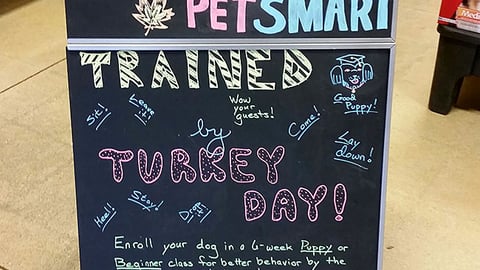 PETSMART
TRAINED
Good
Puppy!
Wow
your
guests!
Leave
it!
Sit!
Come!
by
Lay
down!
TURKEY
DAY!
Heel!
Stay!
Drop
it!
Enroll your dog in a 6-week Puppy or
Beginner class for better behavior by the